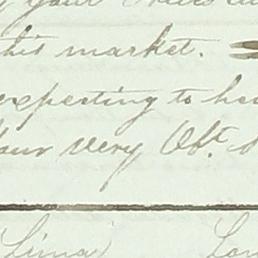 your
this market.
expecting to hea
Your very Obt. S
Lima Lon